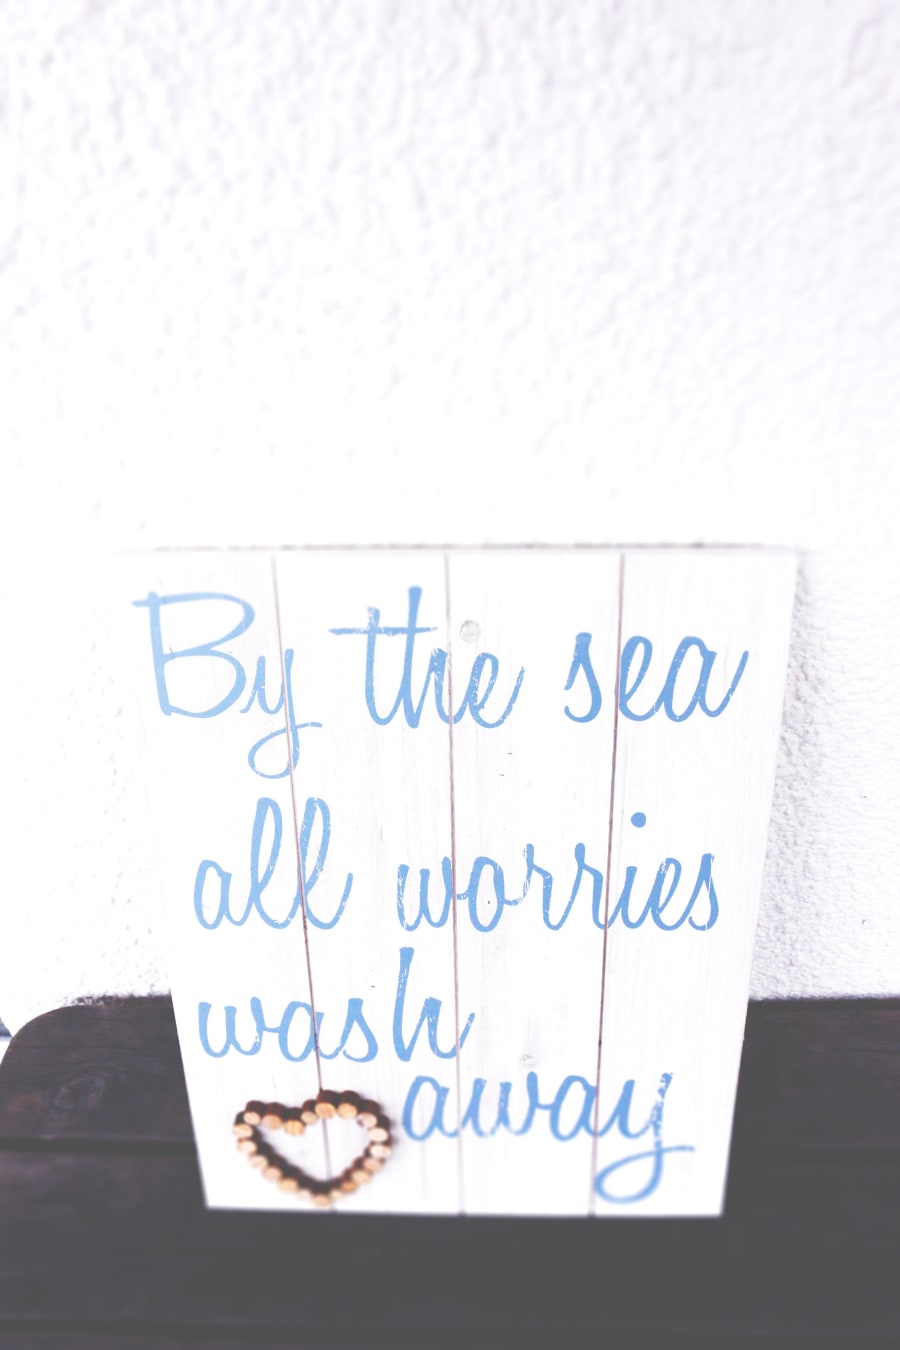 By the sea
all worries
wash
away